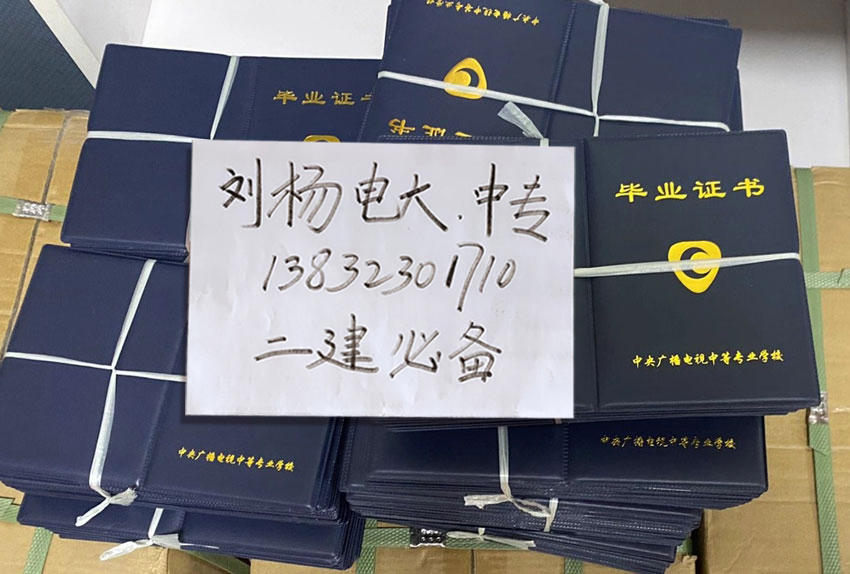 中央广播电视中等专业学校
毕业证书
毕业证书
刘杨电大.中专
13832301710
二建必备
毕业证书
中央广播电视中等专业学校
中央广播电视中等专业学校
中央广播电视中等专业学校